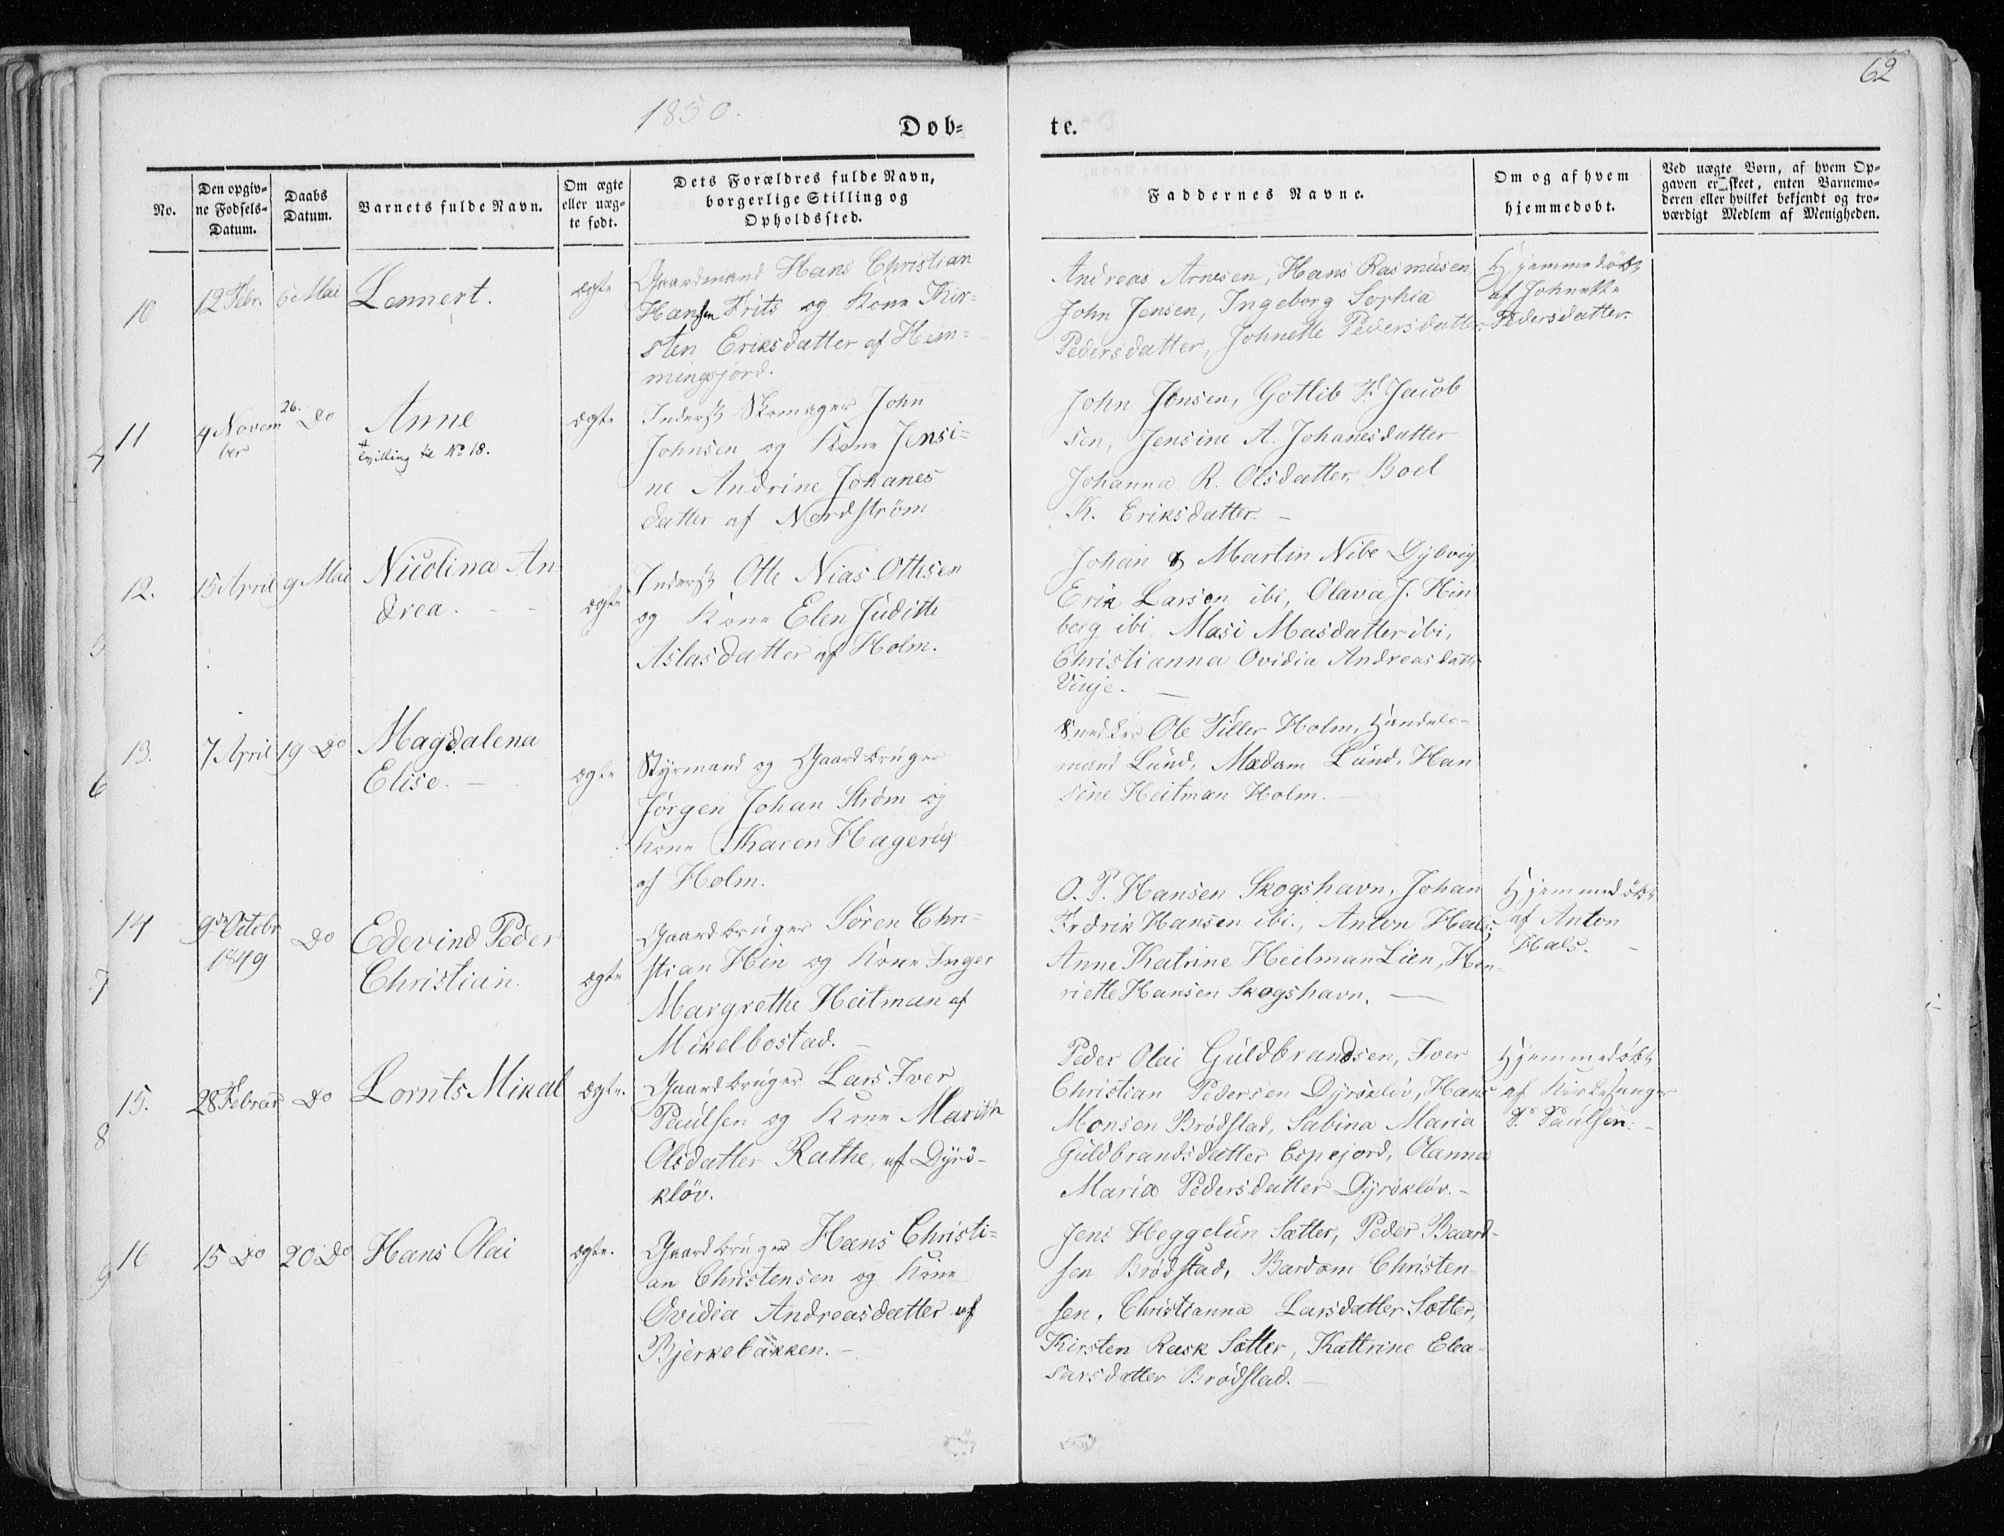 62
1850.
Døb-
te.
No.
Den opgiv-
ne Fødsels-
Datum.
Daabs
Datum.
Barnets fulde Navn.
Om ægte
eller uæg-
te født.
Dets Forældres fulde Navn,
borgerlige Stilling og
Opholdssted.
Faddernes Navne.
Om og af hvem
hjemmedøbt.
Ved uægte Børn, af hvem Op-
gaven er skeet, enten Barnemo-
deren eller hvilket bekjendt og tro-
værdigt Medlem af Menigheden.
10
12 Febr.
6e Mai
Lennert.
ægte
Gaardmand Hans Christian
Hansen Frits og Kone Kir-
sten Eriksdatter af Hem-
mingsjord.
Andreas Arnesen, Hans Rasmusen
John Jensen, Ingeborg Sophia
Pedersdatter, Johnette Pedersdatter
Hjemmedøbt
af Johnette
Pedersdatter.
11
4 Novem
ber
26. Do
Anne
+
tvilling til No 18.
ægte
Inderst Skomager John
Johnsen og Kone Jensi-
ne Andrine Johanes
datter af Nordstrøm
John Jensen, Gotlib F. Jacob
sen, Jensine A. Johanesdatter
Johanna R. Olsdatter, Boel
K. Eriksdatter. -
12.
15 April
9 Mai
Nicolina An-
drea. - -
ægte
Inderst Otte Nias Ottesen
og Kone Elen Juditte
Aslasdatter af Holm.
Johan & Martin Nibe Dybvig
Erik Larsen ibi, Olava J. Hin
berg ibi, Masi Masdatter ibi,
Christianna Ovidia Andreasdatt
Vinje. -
13.
7 April
19 Do
Magdalena
Elise. -
ægte
Styrmand og Gaardbruger
Jørgen Johan Strøm og
Kone Karen Hagerup
af Holm.
Snedker Ole Tiller Holm, Handels-
mand Lund, Madam Lund, Han
sine Heitman Holm. -
14
9de Octobr
1849
Do
Edevind Peder
Christian.
ægte
Gaardbruger Sören Chri-
stian Hin og Kone Inger
Margrethe Heitman af
Mikelbostad. -
O. P. Hansen Skogshavn, Johan
Fredrik Hansen ibi., Anton Hals,
Anne Katrine Heitman Lien, Hen-
riette Hansen Skogshavn. -
Hjemmedøbt
af Anton
Hals. -
15.
28 Februar
Do
Lornts Mikal
ægte.
Gaardbruger Lars Iver
Paulsen og Kone Marith
Olsdatter Rathe, af Dyrö-
kløv.
Peder Olai Guldbrandsen, Iver
Christian Pedersen Dyröklöv, Hans
Monsen Brödstad, Sabina Maria
Guldbrandsdatter Espejord, Olanna
Maria Pedersdatter Dyröklöv. -
Hjemmedøbt
af Kirkesanger
P. Paulsen. -
16
15 Do
20 Do
Hans Olai
ægte.
Gaardbruger Hans Christi-
an Christensen og Kone
Ovidia Andreasdatter af
Bjerkebakken. -
Jens Heggelun Sætter, Peder Baard-
sen Brödstad, Bardom Christen-
sen, Christianna Larsdatter Sætter,
Kirsten Rask Sætter, Kattrine Elea-
sarsdatter Brödstad. -